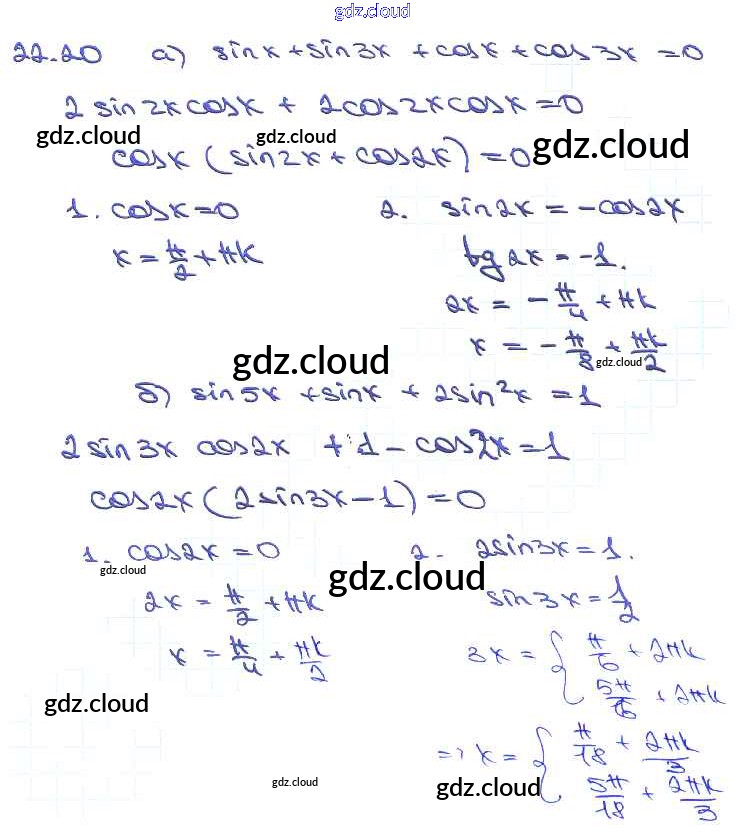 gdz.cloud
22.20 а) sinx + sin3x + cosx + cos3x = 0
2 sin2x cosx + 2cos2x cosx = 0
gdz.cloud gdz.cloud gdz.cloud
cosx (sin2x + cos2x) = 0
1. cosx = 0 2. sin2x = -cos2x
x = π/2 + πk tg 2x = -1.
2x = -π/4 + πk
x = -π/8 + πk/2
gdz.cloud gdz.cloud
б) sin5x + sinx + 2sin²x = 1
2 sin3x cos2x + 1 - cos2x = 1
cos2x (2sin3x - 1) = 0
1. cos2x = 0 2. 2sin3x = 1.
gdz.cloud gdz.cloud
2x = π/2 + πk sin3x = 1/2
x = π/4 + πk/2 3x = { π/6 + 2πk
5π/6 + 2πk
gdz.cloud
=> x = { π/18 + 2πk/3
5π/18 + 2πk/3
gdz.cloud gdz.cloud